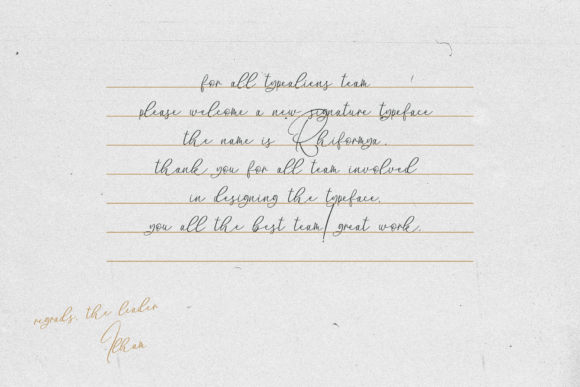 for all typealiens team
please welcome a new signature typeface
the name is Rhiformya.
thank you for all team involved
in designing the typeface.
you all the best team/ great work.
regrads. the leader
Ilham